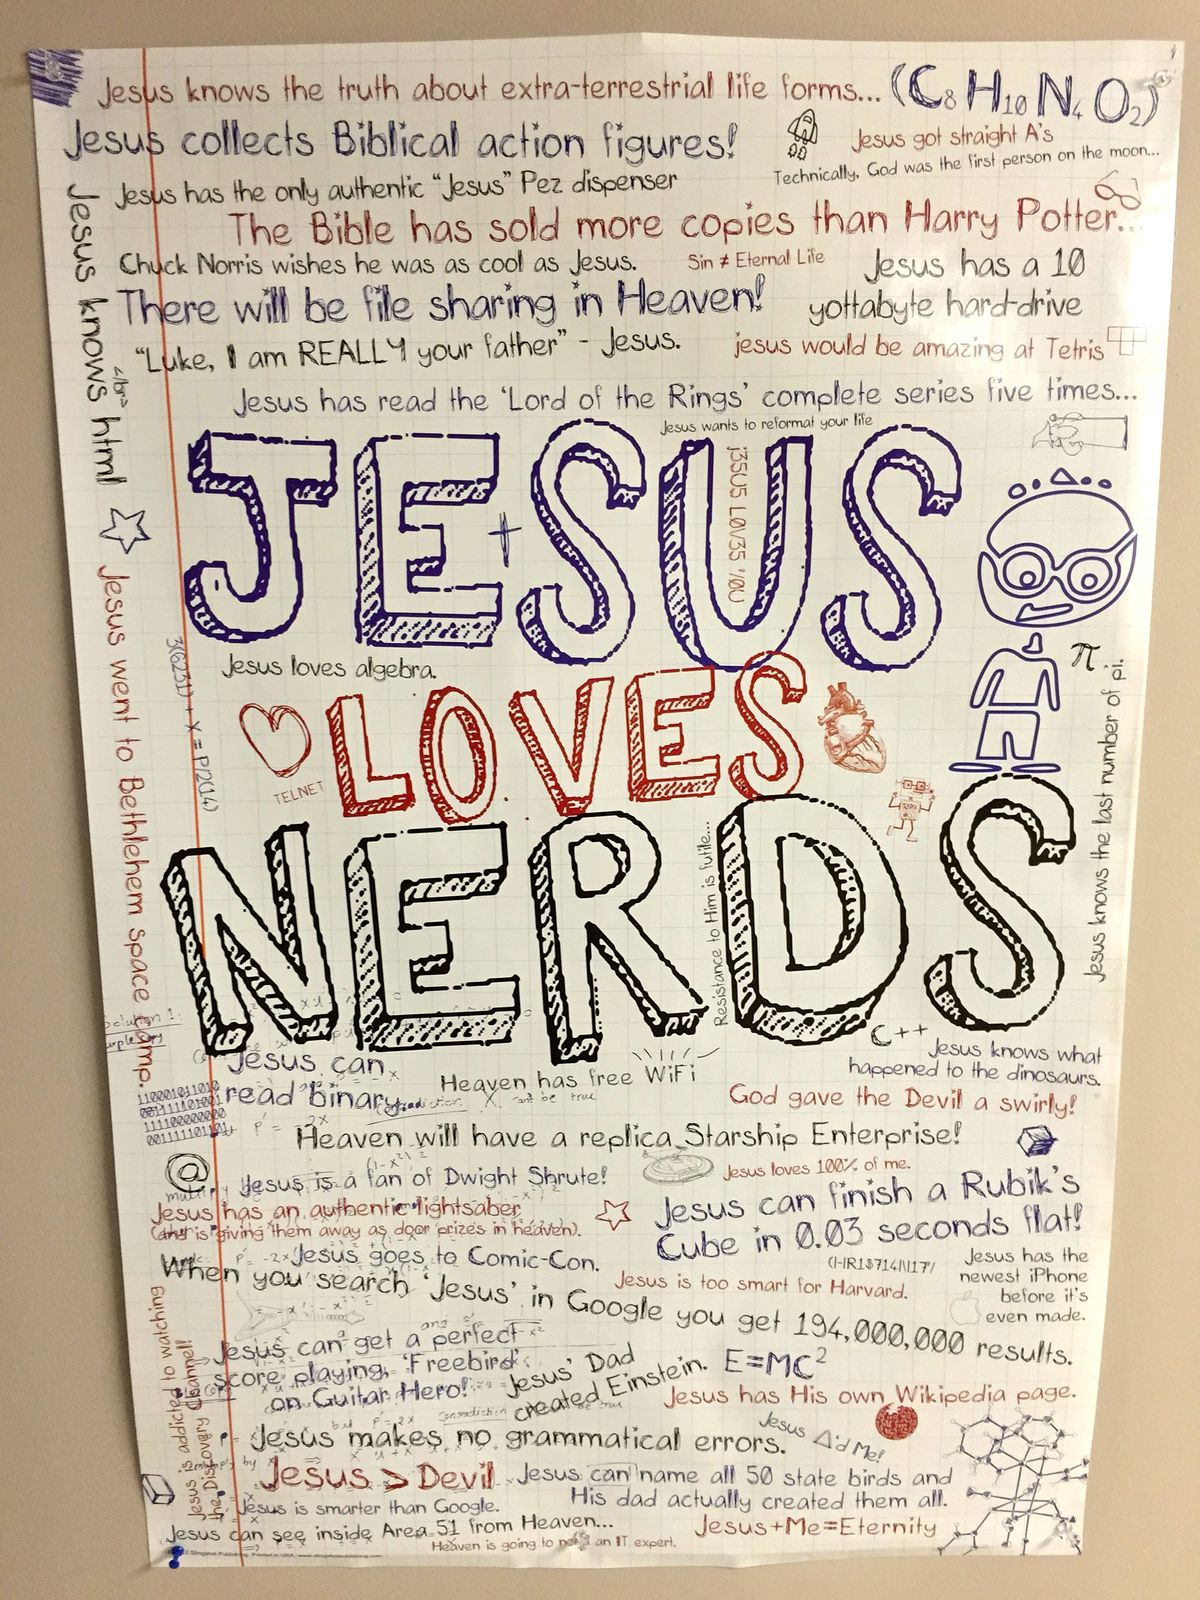 Jesus knows the truth about extra-terrestrial life forms...
(C8 H10 N4 O2)
Jesus collects Biblical action figures!
Jesus got straight A's
Technically, God was the first person on the moon...
Jesus has the only authentic "Jesus" Pez dispenser
The Bible has sold more copies than Harry Potter...
Chuck Norris wishes he was as cool as Jesus.
Sin ≠ Eternal Life
Jesus has a 10
yottabyte hard-drive
There will be file sharing in Heaven!
"Luke, I am REALLY your father" - Jesus.
jesus would be amazing at Tetris
Jesus knows html
</br>
Jesus has read the 'Lord of the Rings' complete series five times...
Jesus wants to reformat your life
JESUS
j35U5 L0V35 '/0U
Jesus loves algebra.
3(6231) + X = P/2(14)
Jesus went to Bethlehem space camp.
π
Jesus knows the last number of pi.
LOVES
TELNET
NERDS
Resistance to Him is futile...
C++
Jesus can
read binary
110001011010
001111101001
11100000000
001111101101
Heaven has free WiFi
Jesus knows what
happened to the dinosaurs.
God gave the Devil a swirly!
Heaven will have a replica Starship Enterprise!
@
Jesus is a fan of Dwight Shrute!
Jesus loves 100% of me.
Jesus has an authentic lightsaber
(and is giving them away as door prizes in heaven).
Jesus can finish a Rubik's
Cube in 0.03 seconds flat!
Jesus goes to Comic-Con.
(HR1$714N17'/
Jesus has the
newest iPhone
before it's
even made.
Jesus is too smart for Harvard.
When you search 'Jesus' in Google you get 194,000,000 results.
Jesus can get a perfect
score playing 'Freebird'
on Guitar Hero!
Jesus' Dad
created Einstein.
E=MC2
Jesus has His own Wikipedia page.
Jesus is addicted to watching
the Discovery Channel!
Jesus makes no grammatical errors.
Jesus Δ'd Me!
Jesus > Devil
Jesus can name all 50 state birds and
His dad actually created them all.
Jesus is smarter than Google.
Jesus can see inside Area 51 from Heaven...
Jesus+Me=Eternity
Heaven is going to need an IT expert.
Slingshot Publishing. Printed in USA. www.slingshotpublishing.com